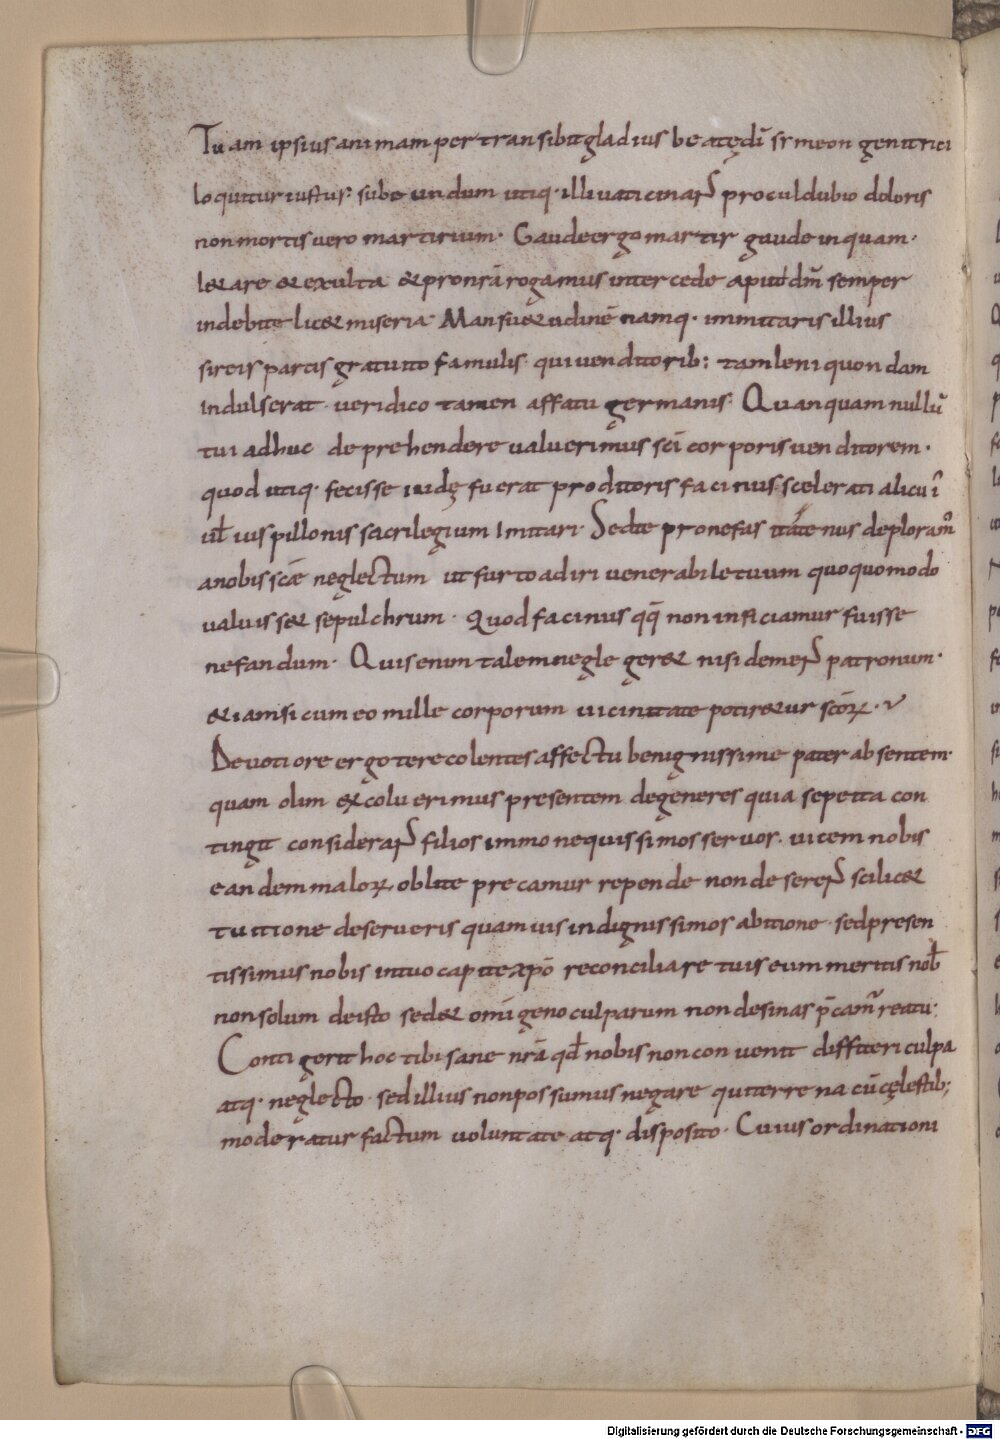 Tuam ipsius animam pertransibit gladius beatę dī symeon genitrici
loquitur iustus; subeundum utiq· illi vaticinat̃ procul dubio doloris
non mortis vero martirium· Gaude ergo martir gaude inquam·
l&are & exulta & pro nr̄a rogamus intercede apud dm̄ semper
indebite lic& miseria· Mansu&udinē namq· immitaris illius
sic eis partis gratuito famulis· qui venditorib; tam leni quondam
indulserat· veridico tamen affatu germanis· Quanquam nullū
tui adhuc deprehendere valuerimus sc̄i corporis venditorem·
quod utiq· fecisse iudę fuerat proditoris facinus scelerati alicuī
ul̄ ius pillonis sacrilegium Imitari· Sed te pro nefas itate nus deploram̄
a nobis scæ neglectum ut furto adiri venerabile tuum quoquomodo
valuiss& sepulchrum· Quod facinus qq̄ non inficiamur fuisse
nefandum· Quis enim talem negleger& nisi demens patronum·
&iamsi cum eo mille corporum vicinitate potir&ur sc̄orꝝ·
Devotiore ergo te recolentes affectu benignissime pater absentem·
quam olim excoluerimus presentem degeneres quia sepe ita con
tingit considerat̃ filios immo nequissimos servos· vicem nobis
eandem malorꝝ oblite precamur repende non deserens scilic&
tuitione deserveris quamvis indignissimos abitione· sed presen
tissimus nobis in tuo capite xpō reconciliare tuis eum meritis nob̄
non solum de isto sed & omīgeno culparum non desinas p̄cam̄ reatu;
Contigerit hoc tibi sane nr̄a qd̄ nobis non convenit diffiteri culpa
atq· neglecto· sed illius non possumus negare qui terrena cū cęlestib;
moderatur factum voluntate atq· disposito· Cuius ordinationi
Digitalisierung gefördert durch die Deutsche Forschungsgemeinschaft - DFG